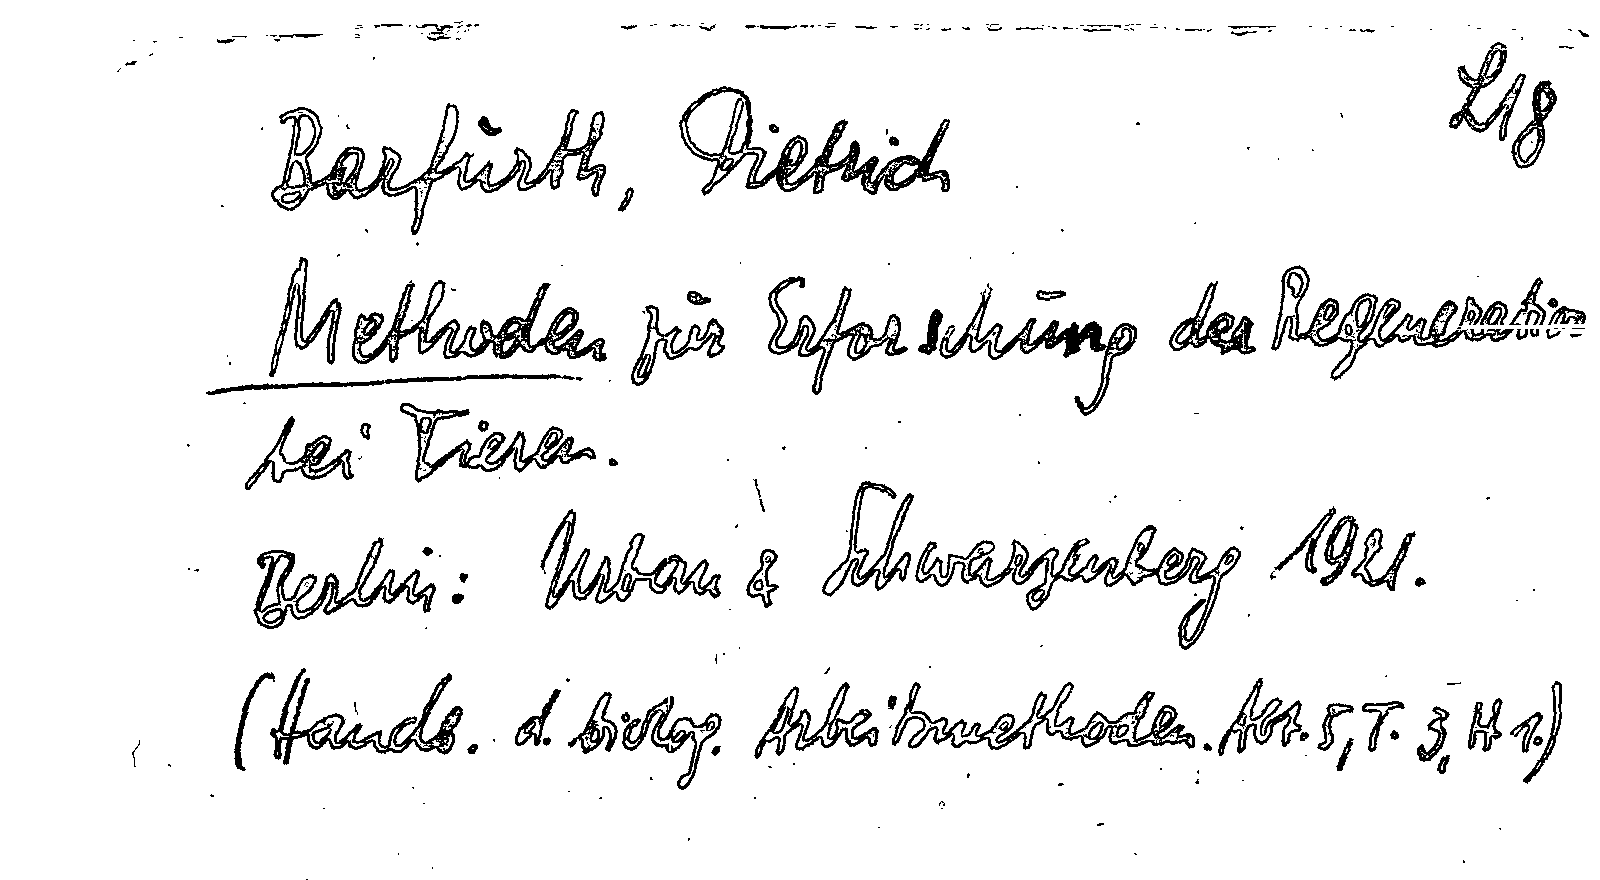 L18
Barfurth, Dietrich
Methoden zur Erforschung der Regeneration
bei Tieren.
Berlin: Urban & Schwarzenberg 1921.
(Handb. d. biolog. Arbeitsmethoden. Abt. 5, T. 3, H 1.)